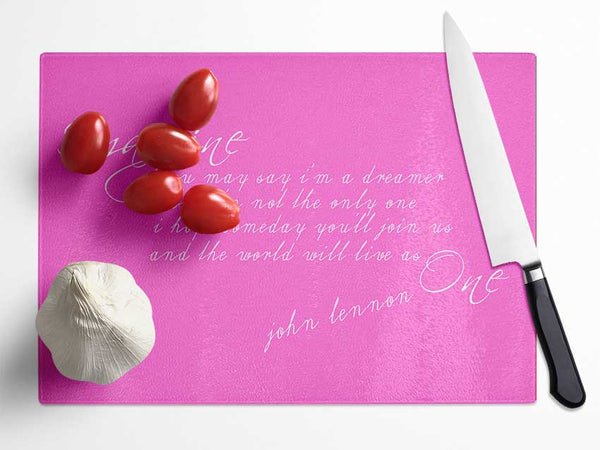 may say i'm a dreamer
not the only one
i someday you'll join us
and the world will live as
One
john lennon